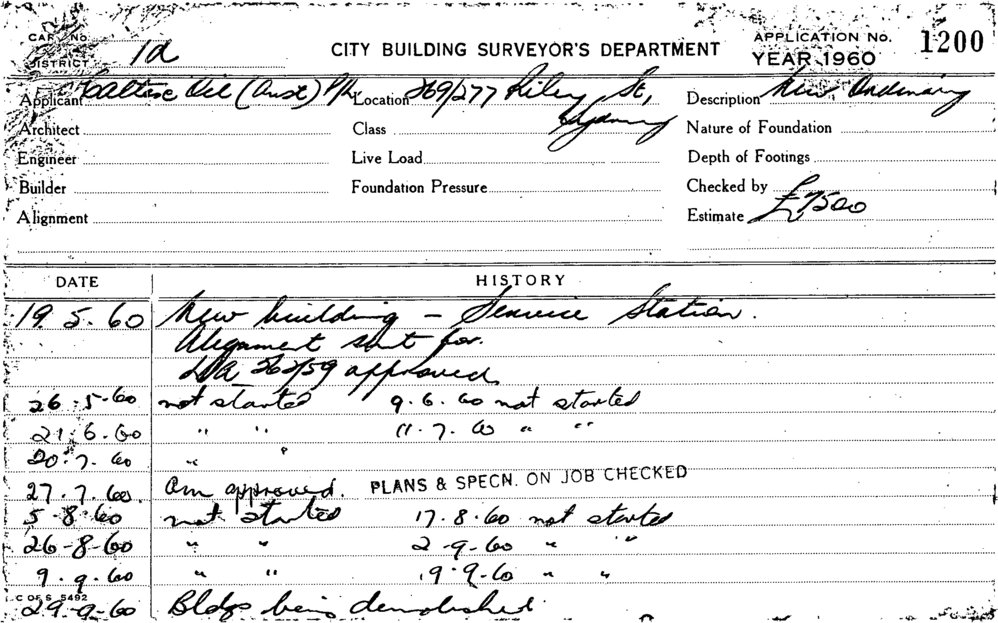 CARD No. 1a CITY BUILDING SURVEYOR'S DEPARTMENT APPLICATION No. 1200
DISTRICT YEAR 1960
Applicant Caltex Oil (Aust) P/L Location 269/277 Riley St, Sydney Description New Ordinary
Architect Class Nature of Foundation
Engineer Live Load Depth of Footings
Builder Foundation Pressure Checked by
Alignment Estimate £7500
DATE HISTORY
19.5.60 New building - Service Station.
Alignment sent for.
D/A 262/59 approved
26.5.60 not started 9.6.60 not started
21.6.60 " " 11.7.60 " "
20.7.60 " "
27.7.60 am approved. PLANS & SPECN. ON JOB CHECKED
5-8-60 not started 17.8.60 not started
26-8-60 " " 2-9-60 " "
9.9.60 " " 19-9-60 " "
C OF S 5492
29-9-60 Bldgs being demolished.